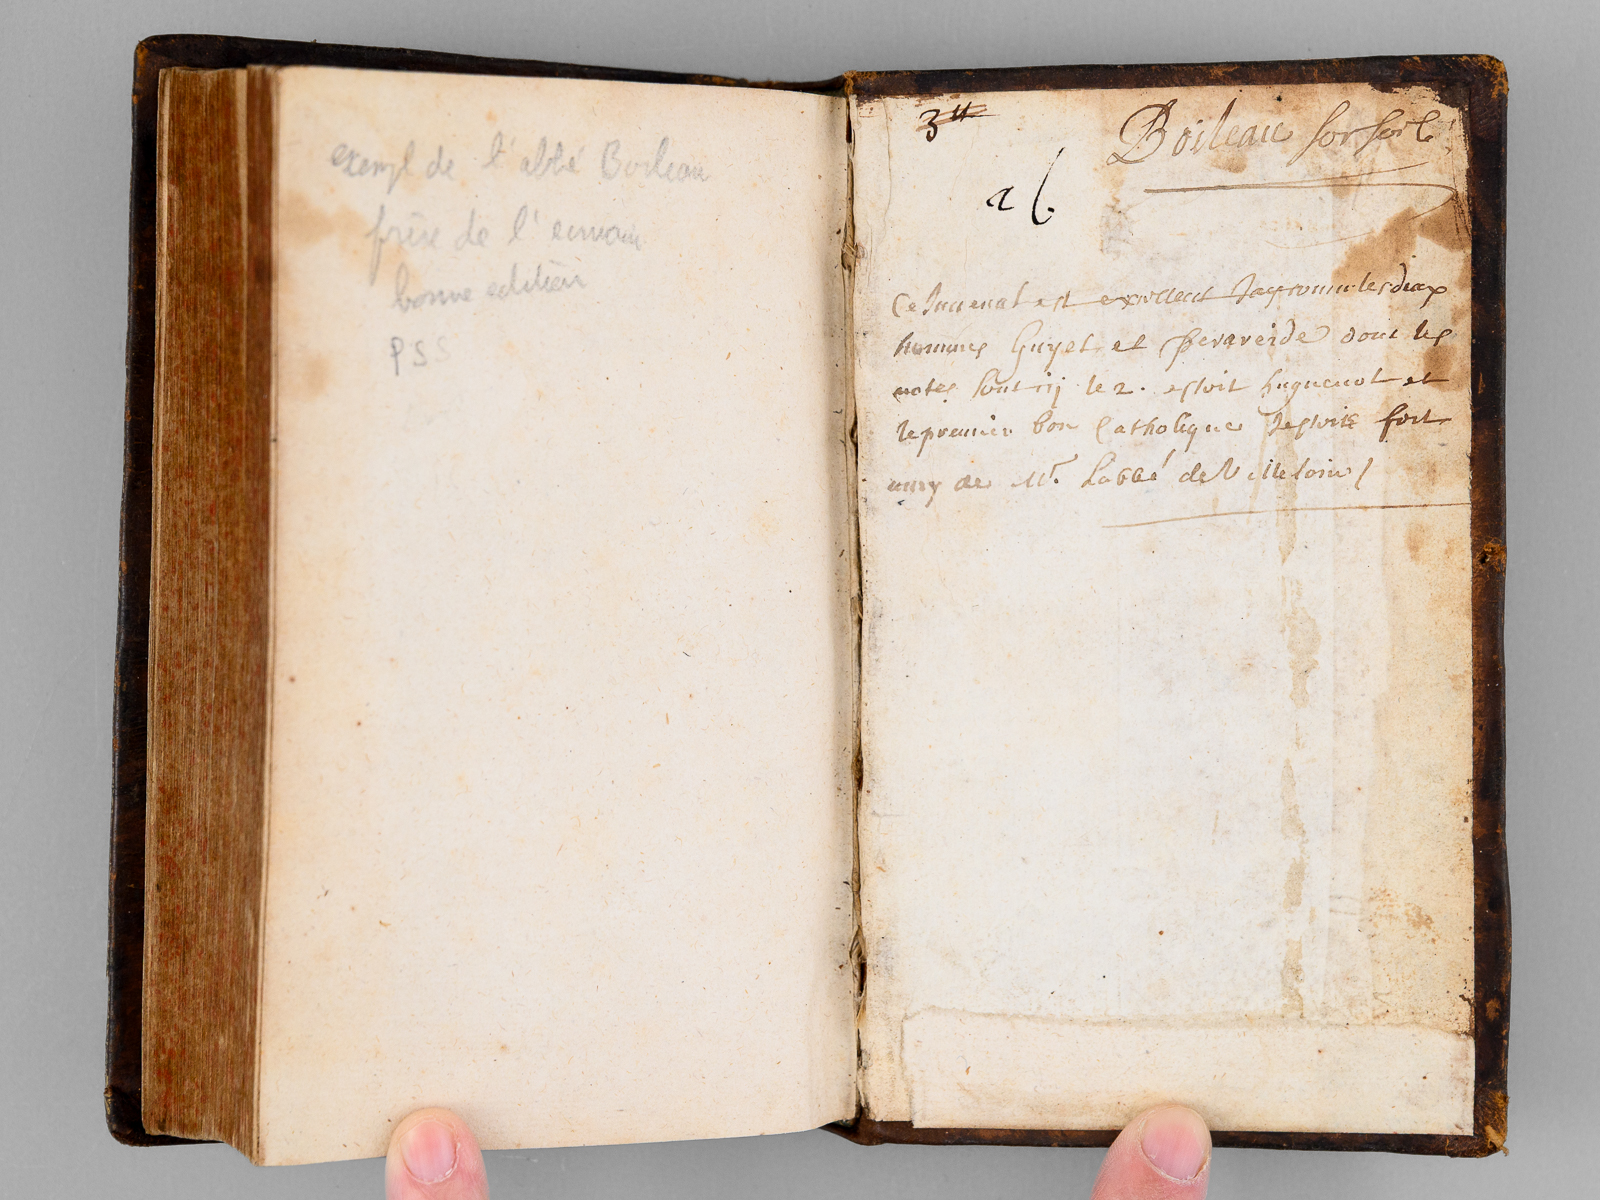 exempl de l'abbé Boileau
frère de l'ecrivain
bonne edition
PSS
3
Boileau sorbore
26.
Ce Juuenal est excellent Jay connu les deux
hommes Guyet et Perareide dont les
notes sont icy le 2. estoit huguenot et
le premier bon Catholique Jestois fort
amy de Mr. Labbé de Villeloin /